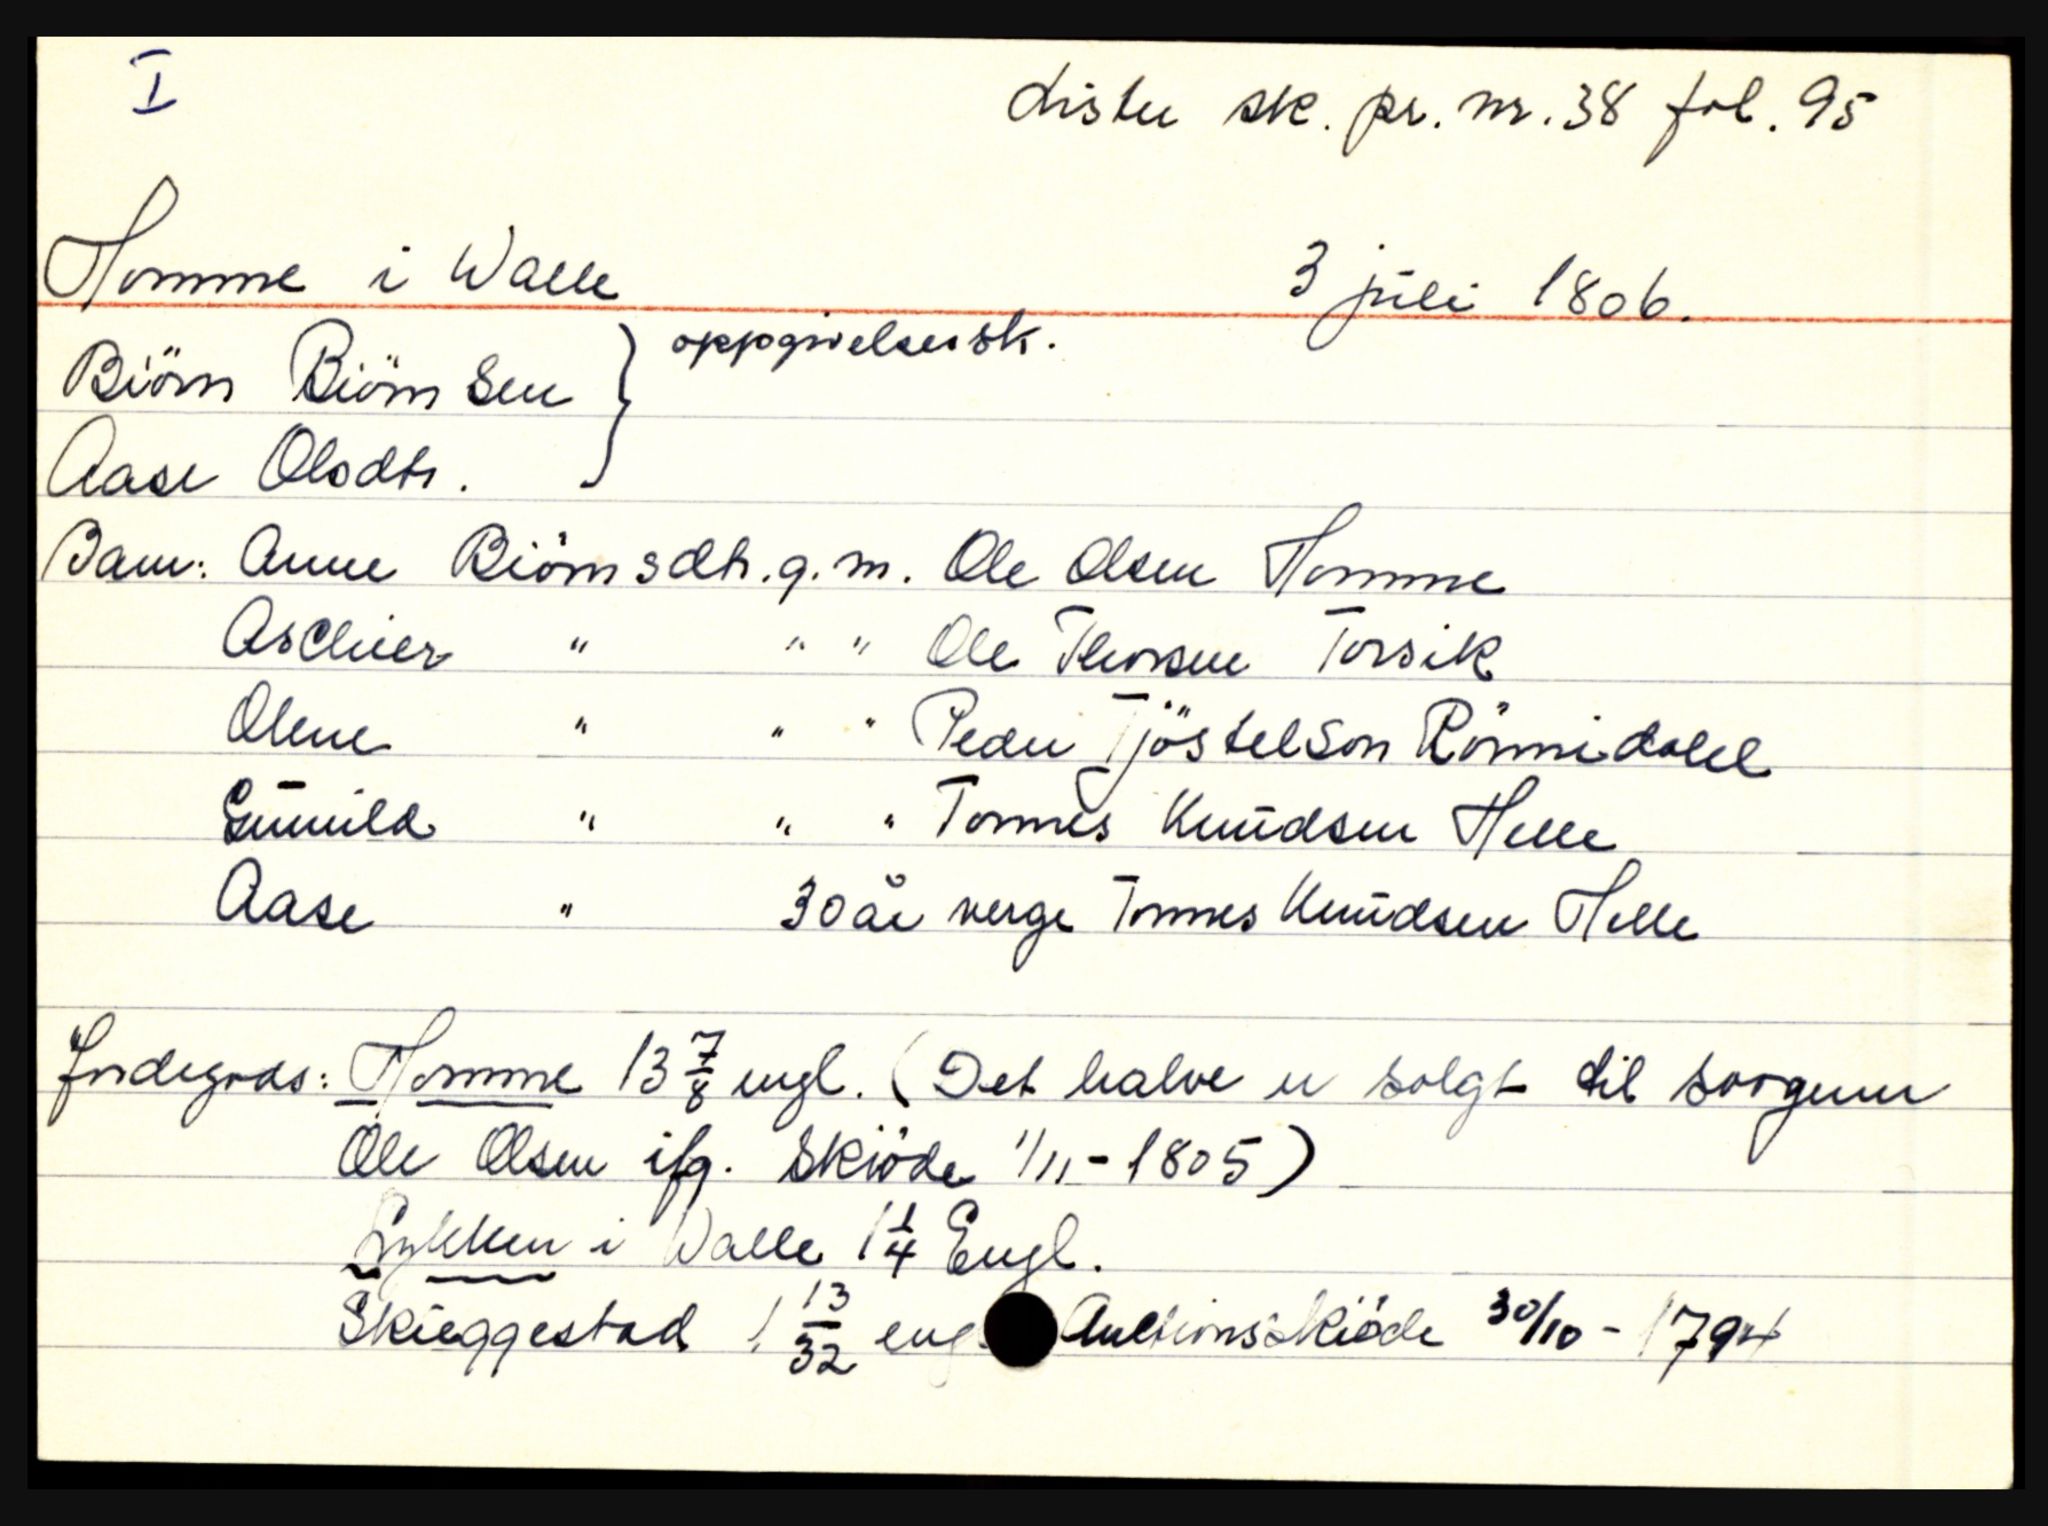 I
Lister sk. pr. nr. 38 fol. 95
Homme i Walle 3 juli 1806.
Biörn Biörnsen } oppgivelsessk.
Aase Olsdtr.
Barn: Anne Biörnsdtr. g. m. Ole Olsen Homme
Aschier " " " Ole Thorsen Torsik
Olene " " " Peder Tjöstelson Rönnidalel
Gunnild " " " Tonnes Knudsen Helle
Aase " 30 år verge Tonnes Knudsen Helle
Jordegods: Homme 13 7/8 engl. (Det halve er solgt til svogeren
Ole Olsen ifg. Skiöde 1/11 - 1805)
Lykken i Walle 1 1/4 Engl.
Skieggestad 1 13/32 eng Auctionsskiöde 30/10 - 1794